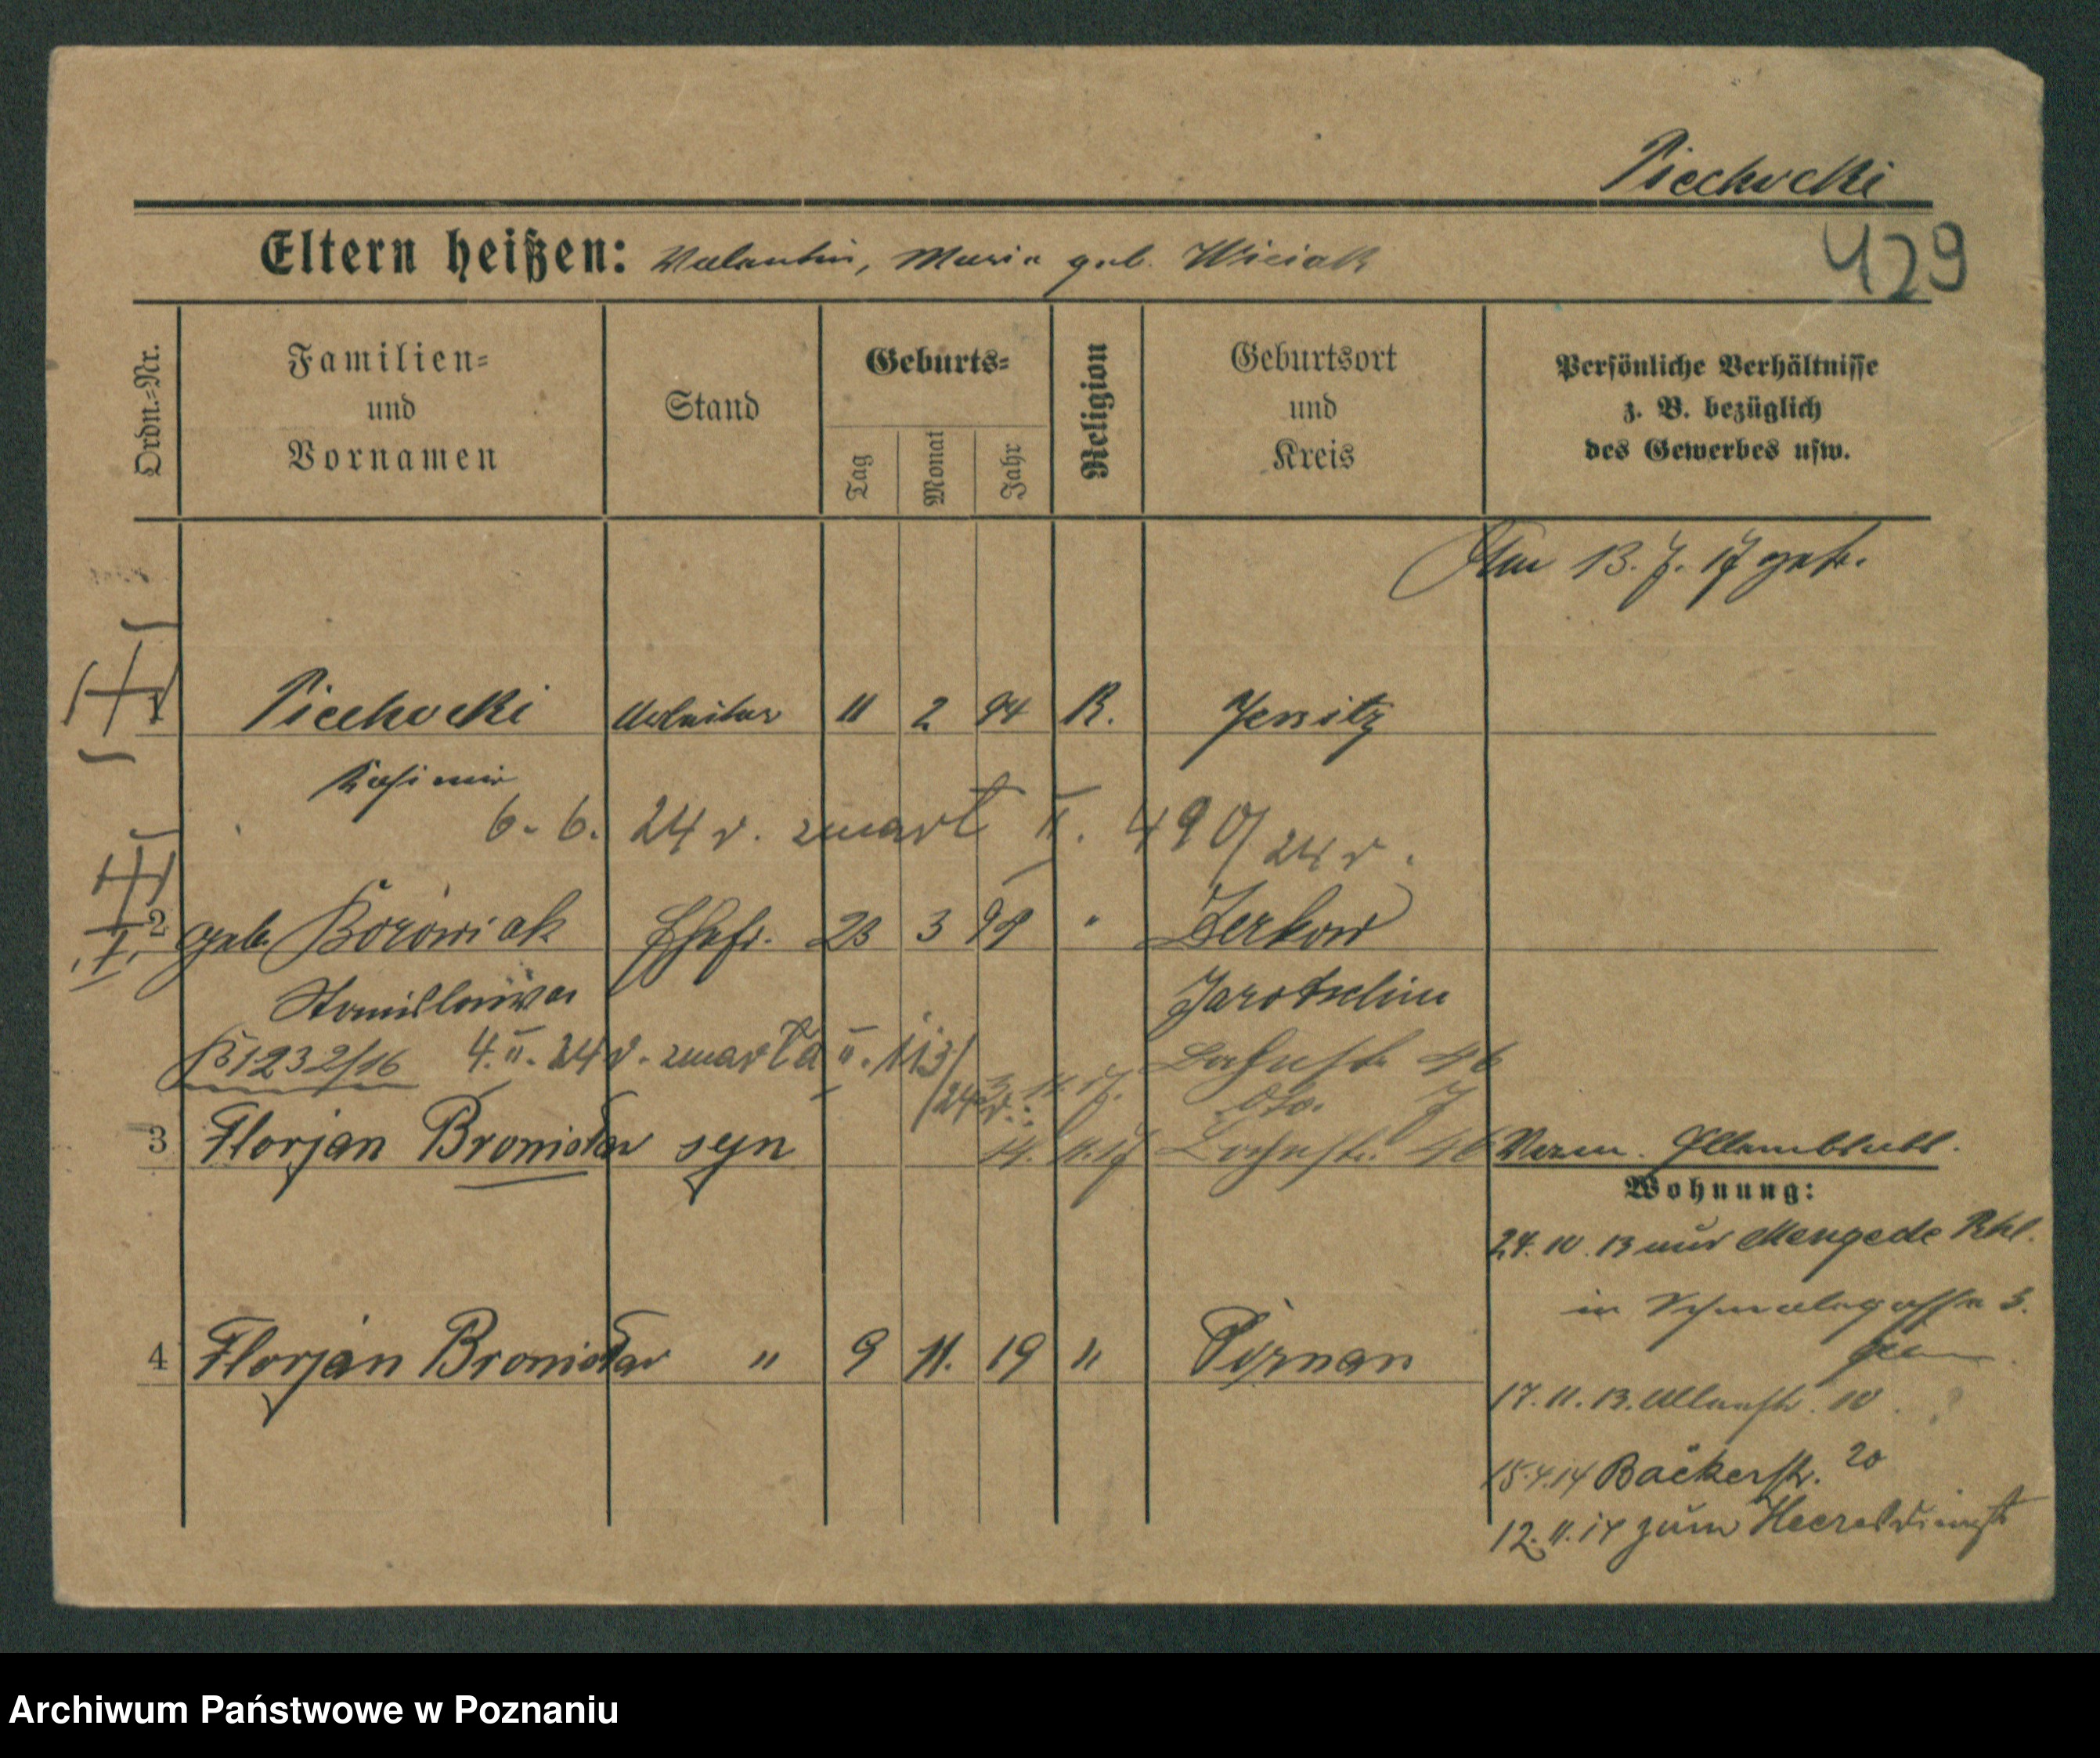 Piechocki
429
Eltern heißen: Valentin, Maria geb. Wiciak
Ordn.=Nr.
Familien=
und
Vornamen
Stand
Geburts=
Tag
Monat
Jahr
Religion
Geburtsort
und
Kreis
Persönliche Verhältnisse
z. B. bezüglich
des Gewerbes usw.
Am 13. 7. 17 getr.
1 Piechocki Arbeiter 11 2 94 R. Jersitz
Kasimir
6. 6. 24 r. zmarł II. 490/24 r.
2 geb. Borówiak Ehefr. 23 3 98 " Zerkow
Stanislawa Jarotschin
B 1232/16 4. II. 24 r. zmarła II. 113/24 r.
46
7
3 Florjan Bronisław syn 14. 11. 17 46
Wohnung:
24. 10. 13 aus Mengede Rhl.
in 3.
4 Florjan Bronisław " 9 11. 19 " Poznan
17. 11. 13. 10
15.4.14 Bäckerstr. 20
12. 11. 14 zum Heeresdienst